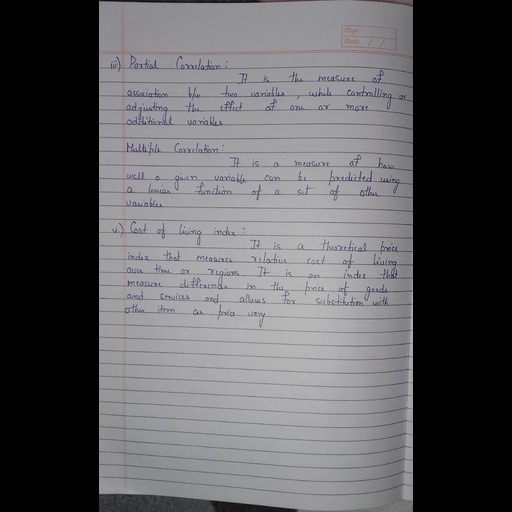 Page:
Date: / /
iii) Partial Correlation:
It is the measure of
association b/w two variables, while controlling or
adjusting the effect of one or more
additional variables
Multiple Correlation:
It is a measure of how
well a given variable can be predicted using
a linear function of a set of other
variables
v) Cost of living index:
It is a theoretical price
index that measures relative cost of living
over time or regions. It is an index that
measure difference in the price of goods
and services and allows for substitution with
other item as price vary